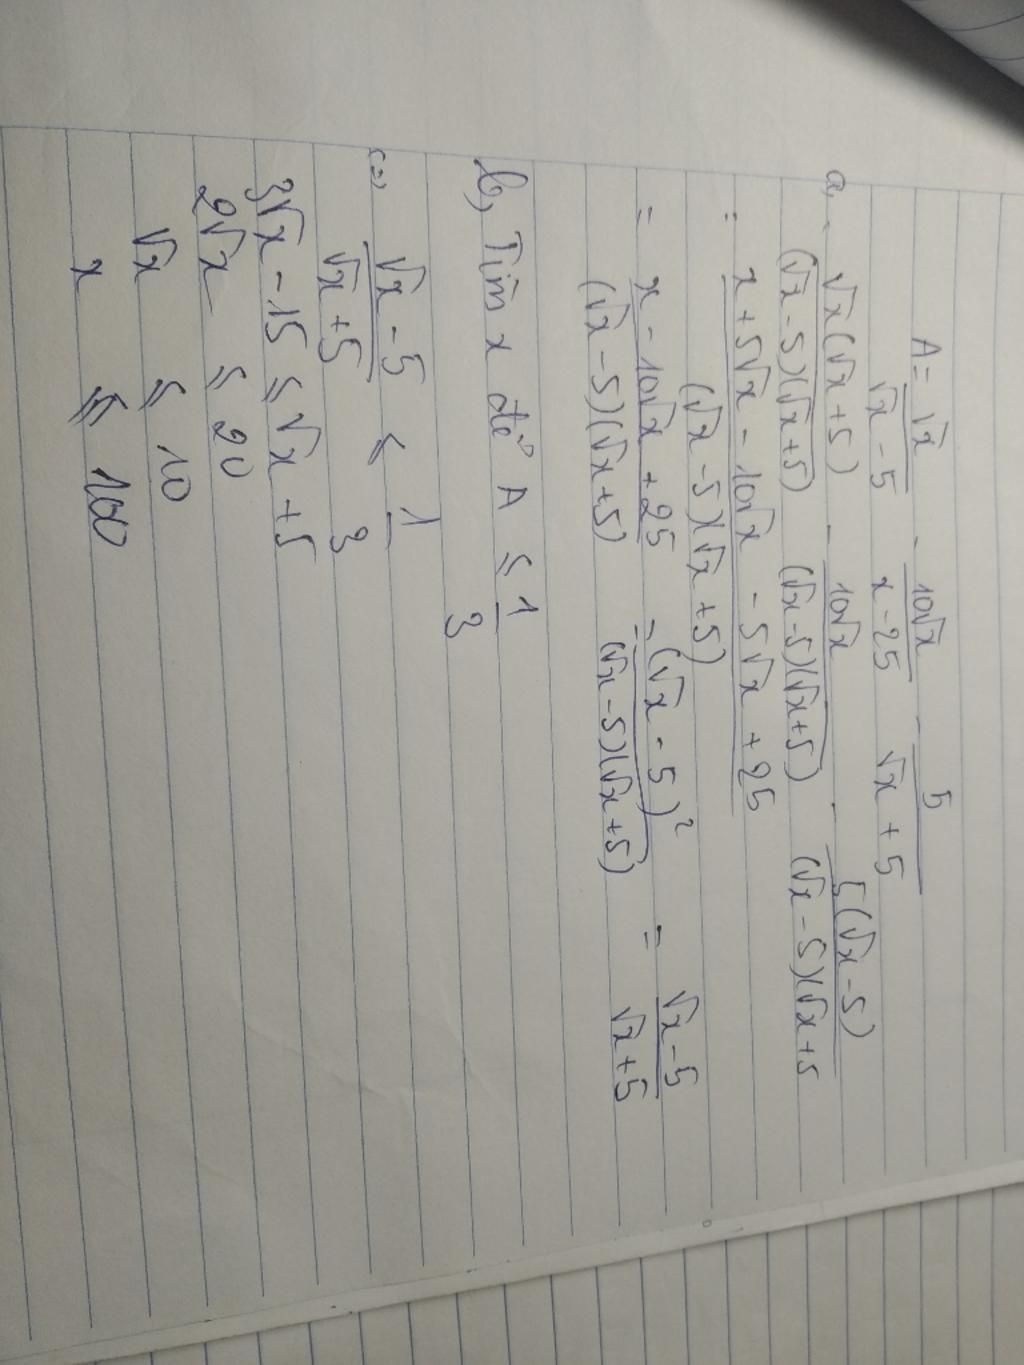 A = √x/(√x - 5) - 10√x/(x - 25) - 5/(√x + 5)
a, √x(√x + 5)/(√x - 5)(√x + 5) - 10√x/(√x - 5)(√x + 5) - 5(√x - 5)/(√x - 5)(√x + 5
= x + 5√x - 10√x - 5√x + 25/(√x - 5)(√x + 5)
= x - 10√x + 25/(√x - 5)(√x + 5) = (√x - 5)²/(√x - 5)(√x + 5) = √x - 5/√x + 5
b, Tìm x để A ≤ 1/3
(=) √x - 5/√x + 5 ≤ 1/3
3√x - 15 ≤ √x + 5
2√x ≤ 20
√x ≤ 10
x ≤ 100